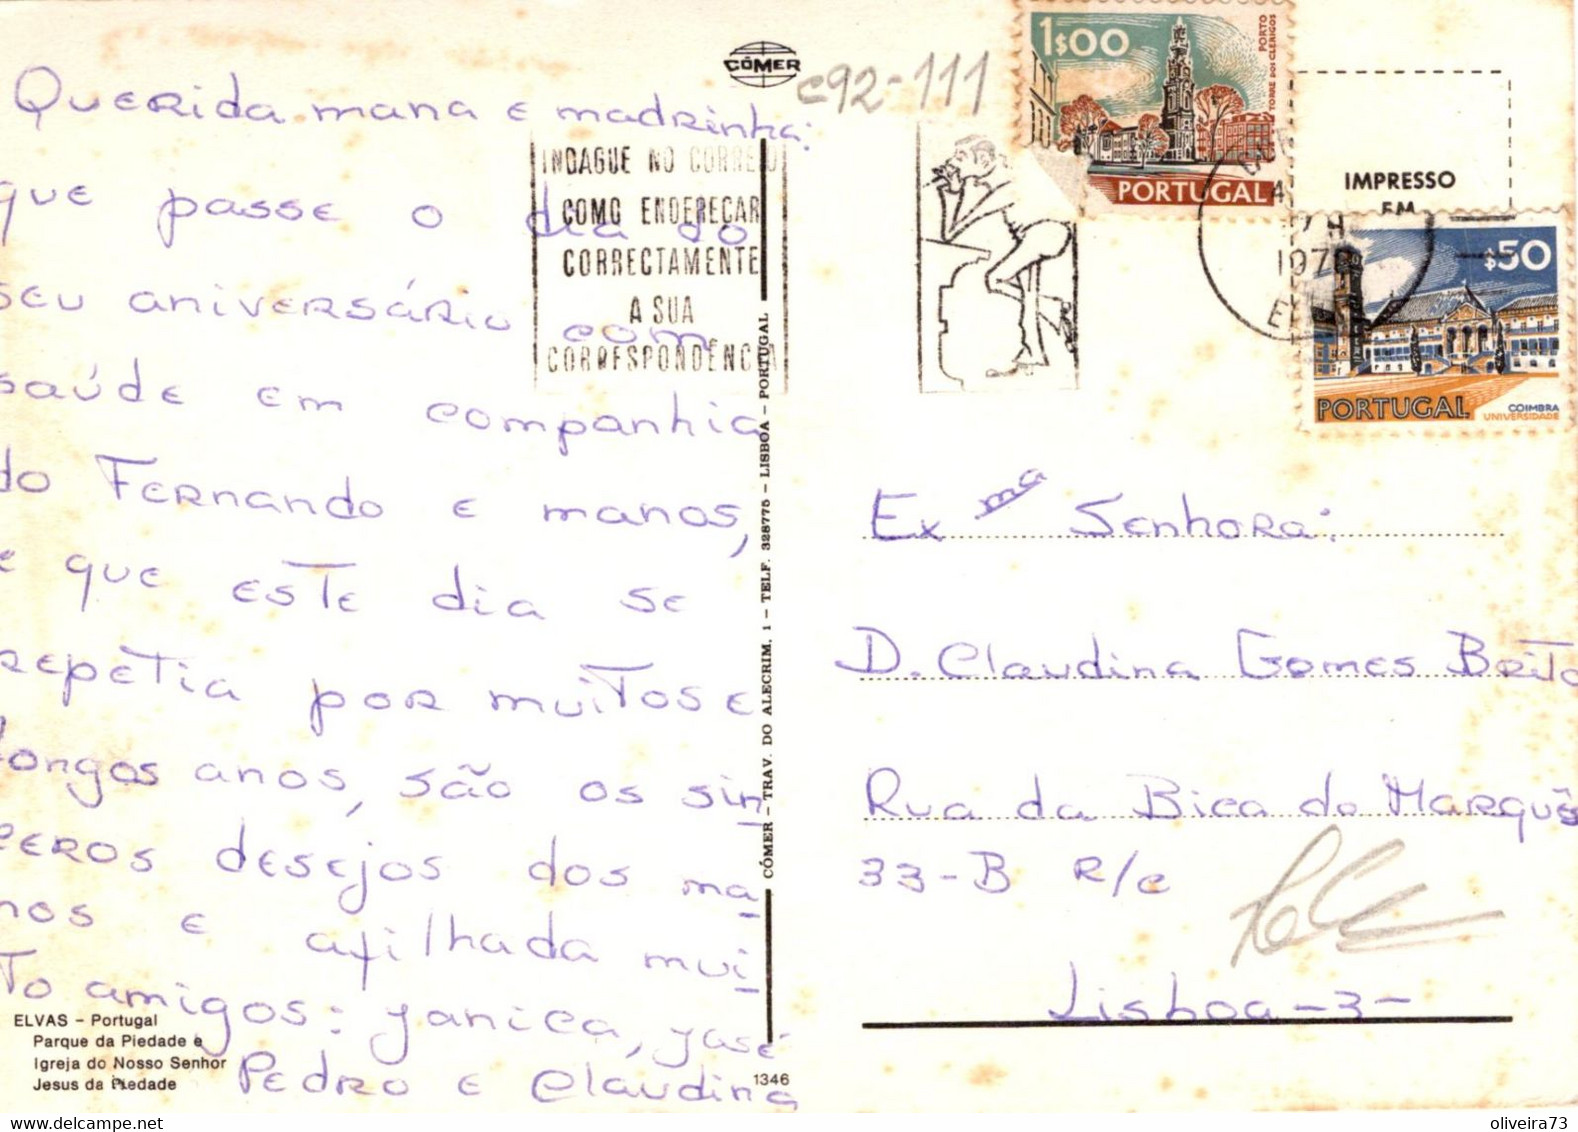 CÓMER
c92-111
Querida mana e madrinha:
que passe o dia do
seu aniversário com
saúde em companhia
do Fernando e manos,
e que este dia se
repetia por muitos e
longos anos, são os sin
ceros desejos dos ma
nos e afilhada mui
to amigos: Janica, José
Pedro e Claudina
ELVAS - Portugal
Parque da Piedade e
Igreja do Nosso Senhor
Jesus da Piedade
1346
CÓMER - TRAV. DO ALECRIM, 1 - TELF. 328775 - LISBOA - PORTUGAL
INDAGUE NO CORREIO
COMO ENDEREÇAR
CORRECTAMENTE
A SUA
CORRESPONDÊNCIA
1$00
PORTO
TORRE DOS CLERIGOS
PORTUGAL
IMPRESSO
EM
$50
PORTUGAL
COIMBRA
UNIVERSIDADE
Exma Senhora:
D. Claudina Gomes Brito
Rua da Bica do Marquês
33-B R/c
Lisboa-3-
oliveira73